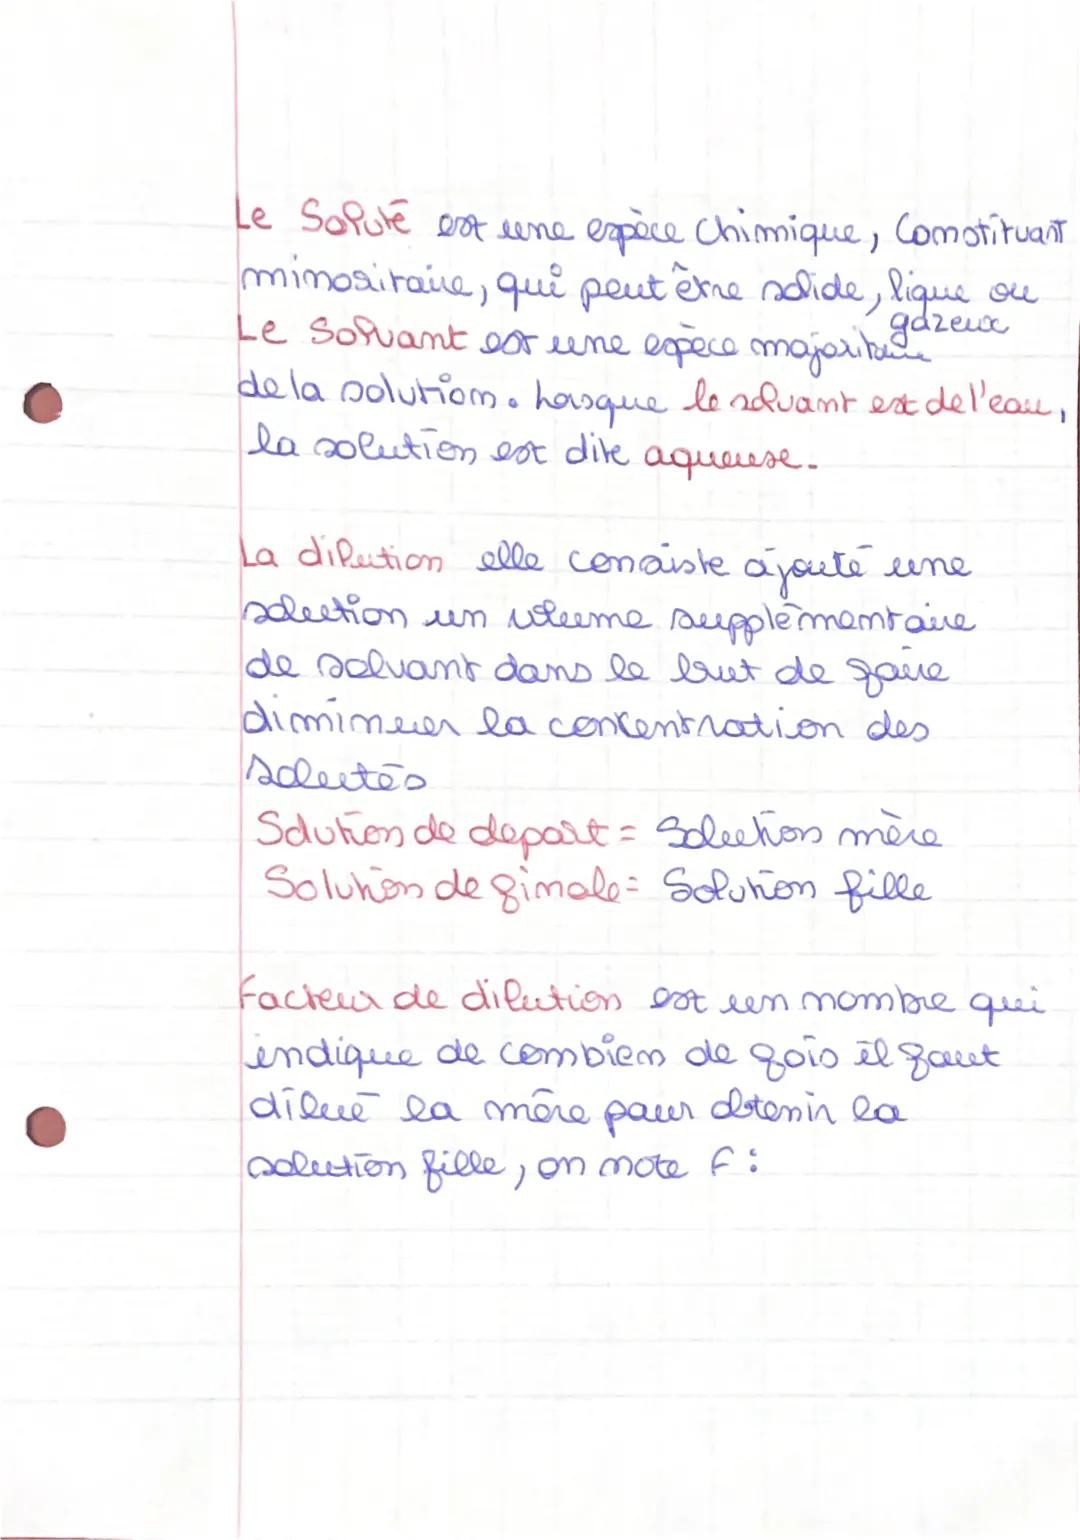 Le Soluté est une espèce Chimique, Constituant
minoritaire, qui peut être solide, lique ou
gazeux
Le Solvant est une espèce majoritaire
de la solution. Lorsque le solvant est de l'eau,
la solution est dite aqueuse.
La dilution elle consiste ajouté une
solution un volume supplémentaire
de solvant dans le but de faire
diminuer la concentration des
solutés
Solution de depart = Solution mère
Solution de finale = Solution fille
Facteur de dilution est un nombre qui
indique de combien de fois il faut
dilué la mère pour obtenir la
solution fille, on note F :